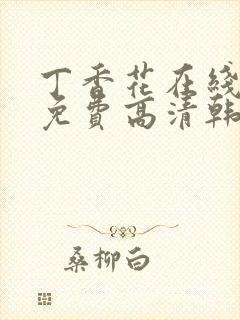 丁香花在线
免费高清韩
桑柳白